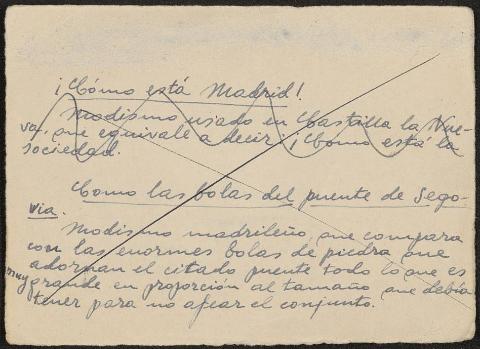 ¡Cómo está Madrid!
Modismo usado en Castilla la Nue-
va, que equivale a decir: ¡Cómo está la
sociedad.
Como las bolas del puente de Sego-
via.
Modismo madrileño, que compara
con las enormes bolas de piedra que
adornan el citado puente todo lo que es
muy grande en proporción al tamaño que debía
tener para no afear el conjunto.